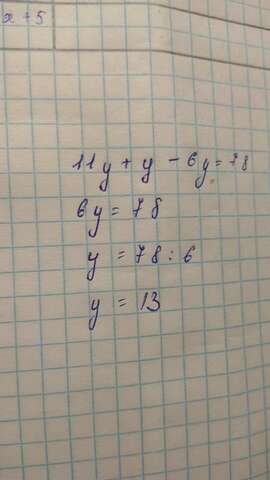 x + 5
11y + y - 6y = 78
6y = 78
y = 78 : 6
y = 13